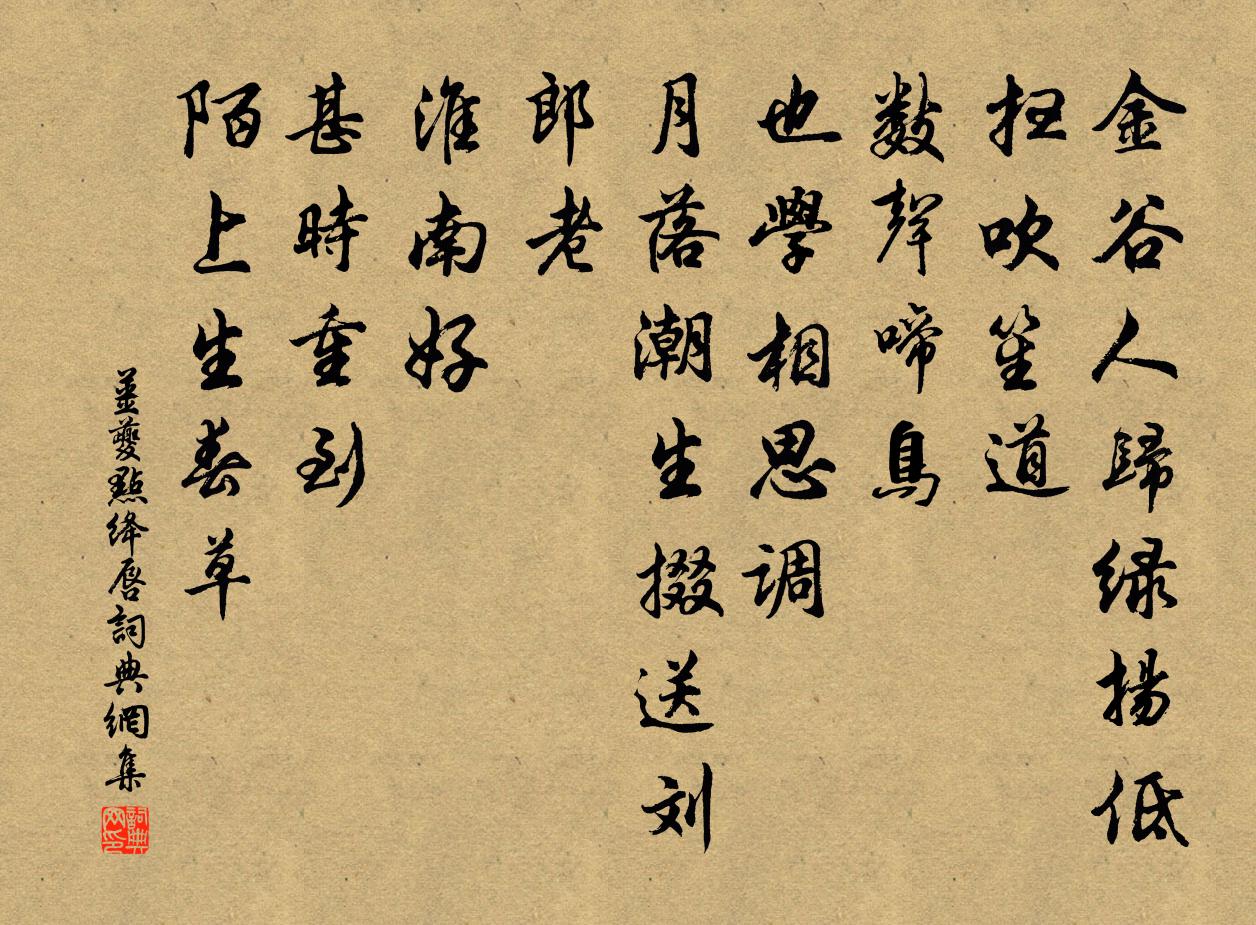 金谷人歸緑揚低
扫吹笙道
數聲啼鳥
也學相思調
月落潮生掇送刘
郎老
淮南好
甚時重到
陌上生春草
薑夔點絳唇詞典網集
詞典网印